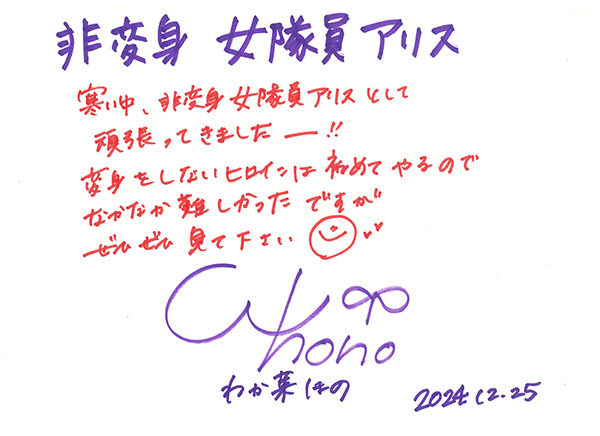 非変身 女隊員アリス
寒い中、非変身女隊員アリスとして
頑張ってきましたー!!
変身をしないヒロインは初めてやるので
なかなか難しかったですが
ぜひぜひ見て下さい
honoo
わか菜ほの 2024.12.25